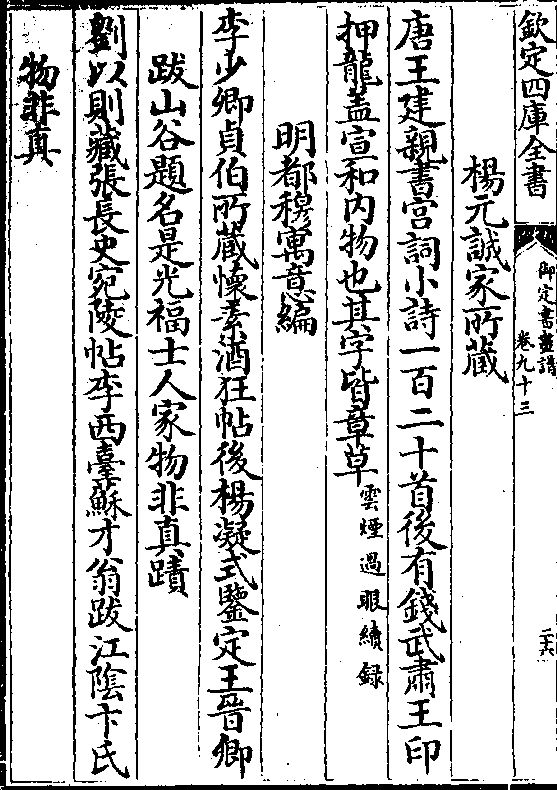 欽定四庫全書
御定書畫譜
卷九十三
二六
楊元誠家所藏
唐王建親書宮詞小詩一百二十首後有錢武肅王印
押龍蓋宣和內物也其字皆章草雲煙過眼續録
明都穆寓意編
李少卿貞伯所蔵懷素酒狂帖後楊凝式鑒定王晉卿
跋山谷題名是光福士人家物非真蹟
劉以則藏張長史宛陵帖李西臺蘇才翁跋江陰卞氏
物非真